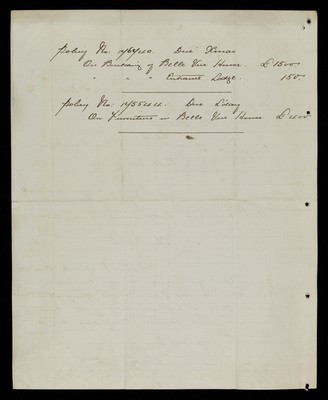 Policy No. Due Xmas
On Building of Belle Vue House. £1500
" " " Entrance Lodge. 150.
Policy No. Due L'day
On Furniture in Belle Vue House £400